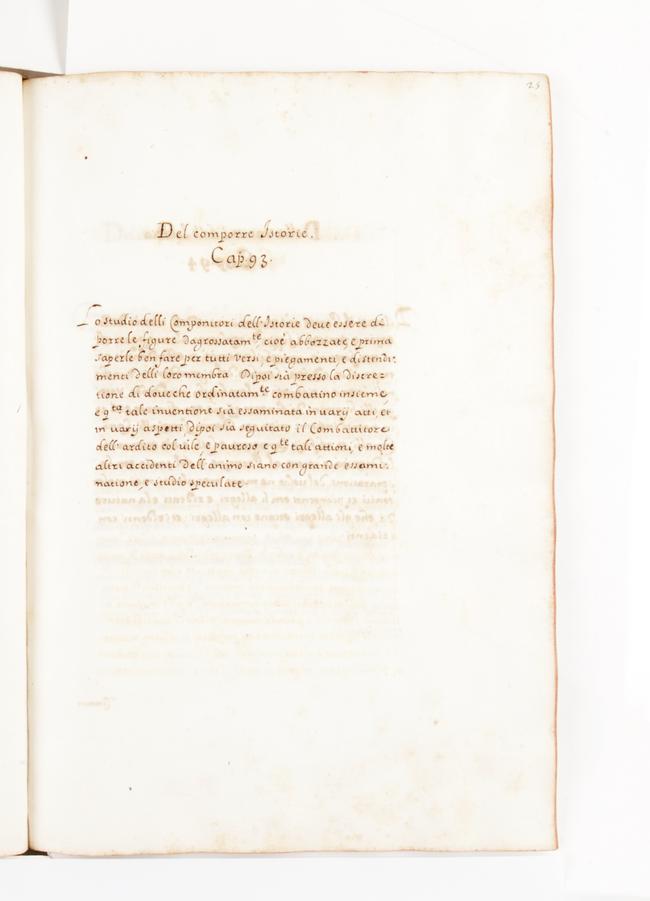 25
Del comporre Istorie.
Cap. 93.
Lo studio delli Componitori dell'Istorie deue essere di
porre le figure dagrossatam.te cioè abbozzate, e prima
saperle ben fare per tutti uersi, e piegamenti, e distendi:
menti delli loro membra Dipoi sià presso la discrez:
tione di doue che ordinatam.te combattino insieme,
e q.ta tale inuentione sià essaminata in uarij atti, et
in uarij aspetti Dipoi sia seguitato il Combattitore
dell'ardito col uile, e pauroso e q.te tali attioni, e molte
altri accidenti dell'animo siano con grande essami:
natione, e studio speculate